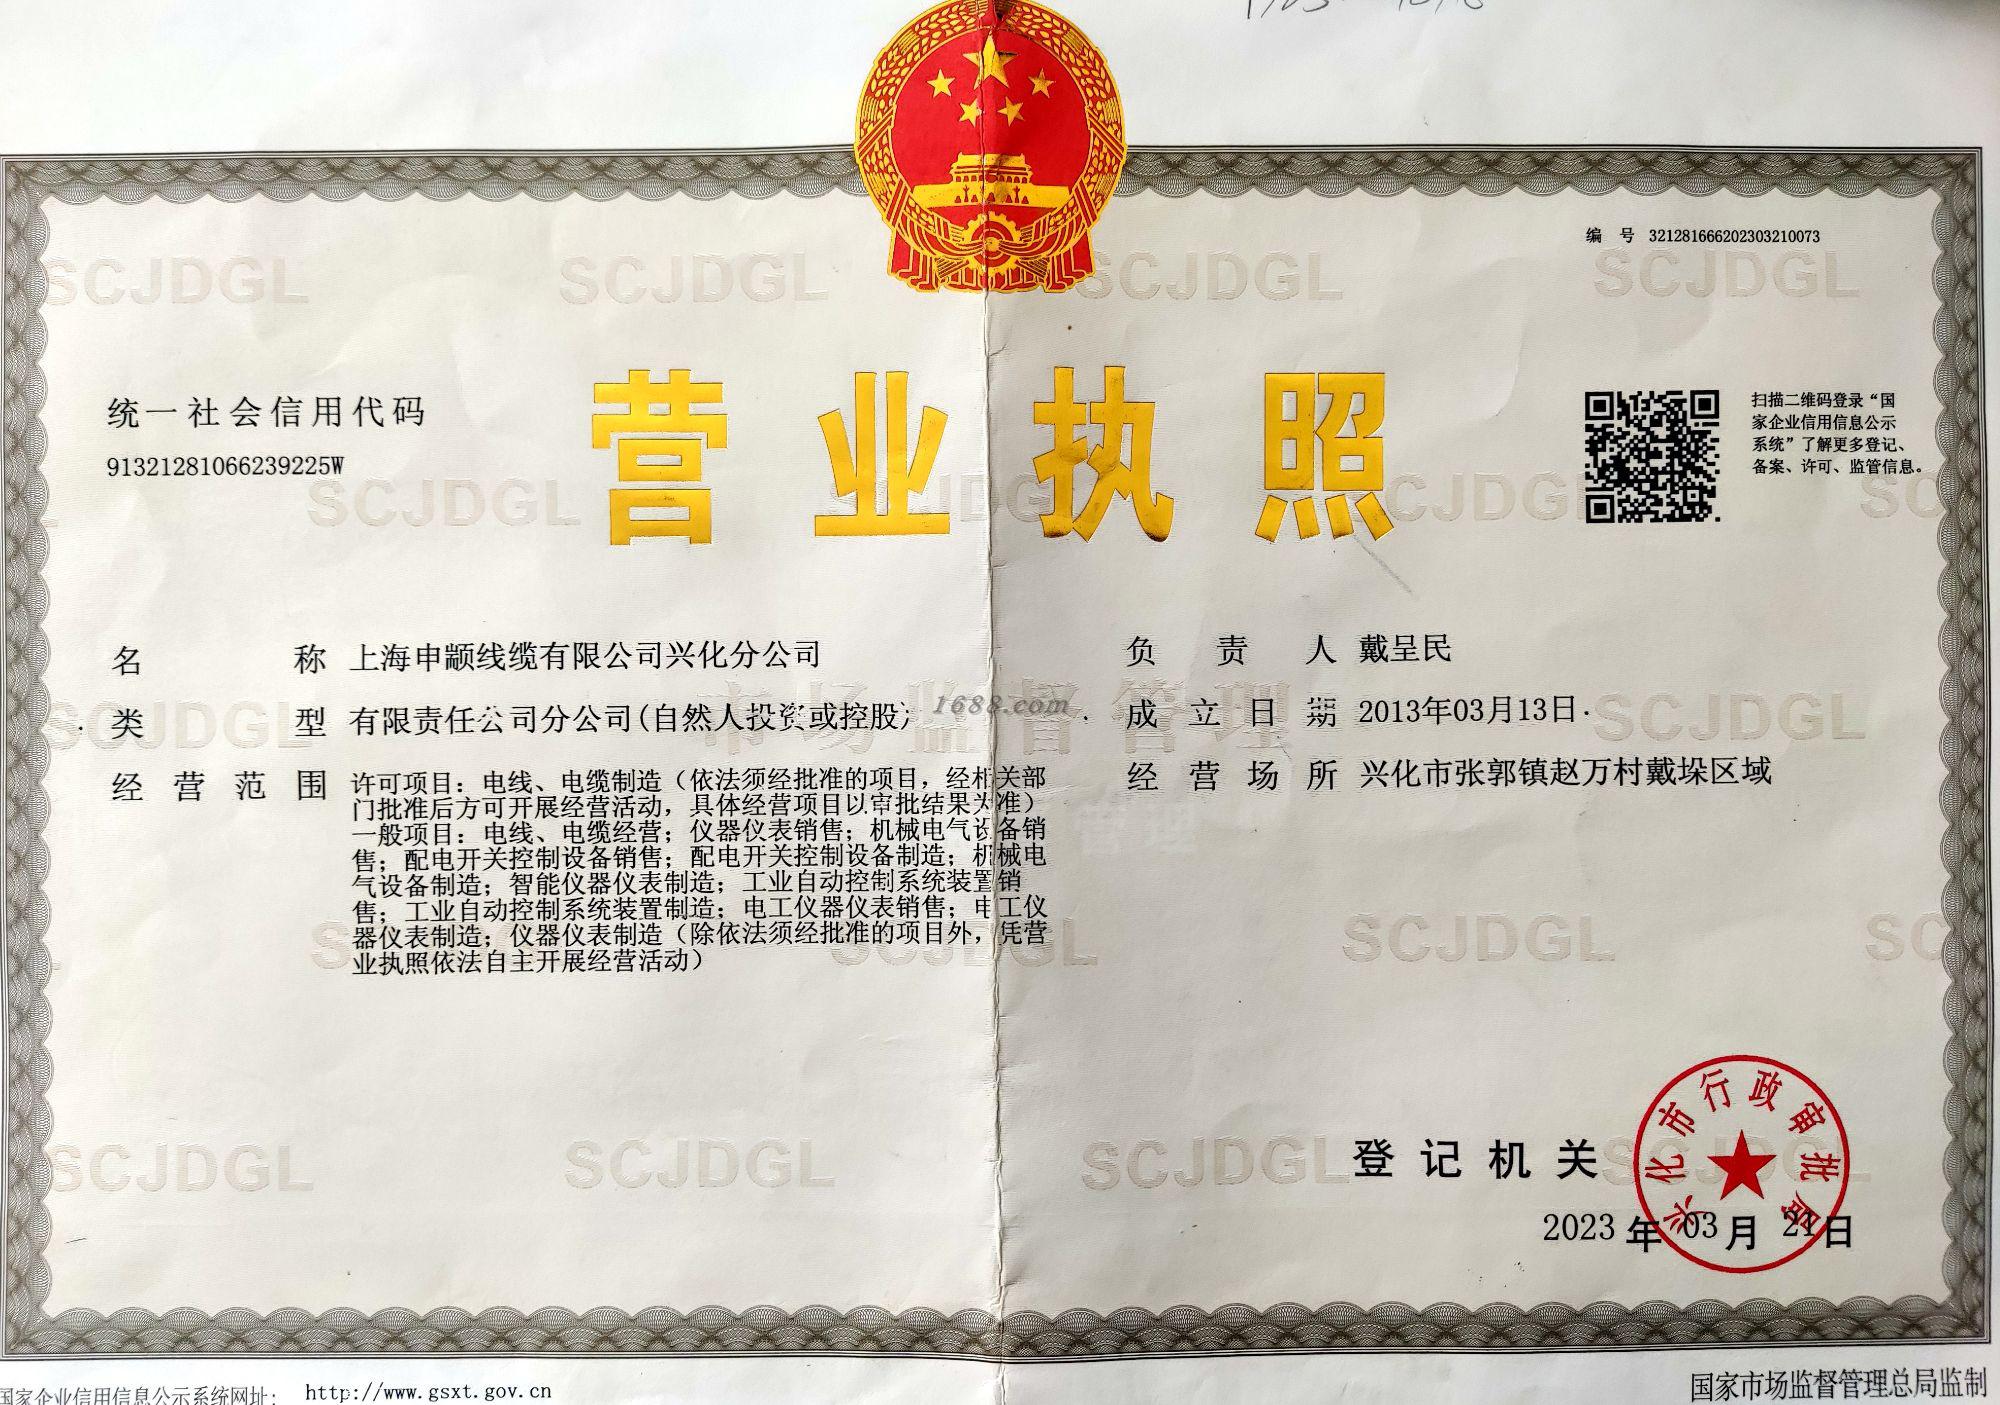 编 号 321281666202303210073
统一社会信用代码
91321281066239225W
营业执照
扫描二维码登录“国
家企业信用信息公示
系统”了解更多登记、
备案、许可、监管信息。
名 称 上海申颛线缆有限公司兴化分公司
类 型 有限责任公司分公司(自然人投资或控股)
经营范围 许可项目：电线、电缆制造（依法须经批准的项目，经相关部
门批准后方可开展经营活动，具体经营项目以审批结果为准）
一般项目：电线、电缆经营；仪器仪表销售；机械电气设备销
售；配电开关控制设备销售；配电开关控制设备制造；机械电
气设备制造；智能仪器仪表制造；工业自动控制系统装置销
售；工业自动控制系统装置制造；电工仪器仪表销售；电工仪
器仪表制造；仪器仪表制造（除依法须经批准的项目外，凭营
业执照依法自主开展经营活动）
负责人 戴呈民
成立日期 2013年03月13日
经营场所 兴化市张郭镇赵万村戴垛区域
1688.com
市场监督管理
SCJDGL
登记机关
兴化市行政审批局
2023年03月21日
国家企业信用信息公示系统网址： http://www.gsxt.gov.cn
国家市场监督管理总局监制